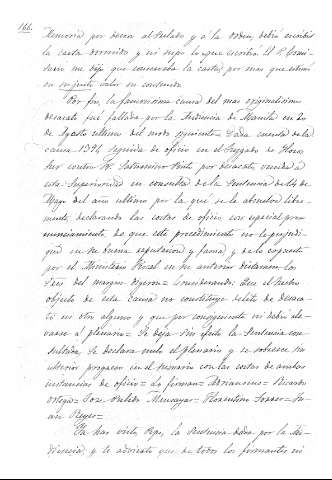 166.
Memoria por decoro al Prelado y a la Orden, debió escribir
la carta dormido y ni supo lo que escribía. El P. Comi-
sario me dijo que conservaba la carta, por mas que estimó
en su justo valor su contenido.
Por fin, la famosísima causa del mas originalísimo
desacato fué fallada por la Audiencia de Manila en 20
de Agosto último del modo siguiente: Dada cuenta de la
causa 1391 seguida de oficio en el Juzgado de
contra por desacato, venida a
esta Superioridad en consulta de la Sentencia de 14 de
Mayo del año último por la que se le absuelve libre-
mente, declarando las costas de oficio, con especial pro-
nunciamiento, de que este procedimiento no le perjudi-
que en su buena reputacion y fama; y de lo expuesto
por el Ministerio Fiscal en su anterior dictamen. Los
Sres del margen dijeron = Considerando: Que el hecho
objeto de esta causa no constituye delito de desaca-
to ni otro alguno y que por consiguiente ni debió ele-
varse a plenario = Se deja sin efecto la Sentencia con-
sultada, Se declara nulo el plenario y se sobresee sin
ulterior progreso en el sumario con las costas de ambas
instancias de oficio = Lo firman = = Ricardo
Ortega = José = Florentino = Ju-
an Reyes =
Ya has visto, Pepe, la Sentencia dada por la Au-
diencia, y te advierto que de todos los firmantes ni